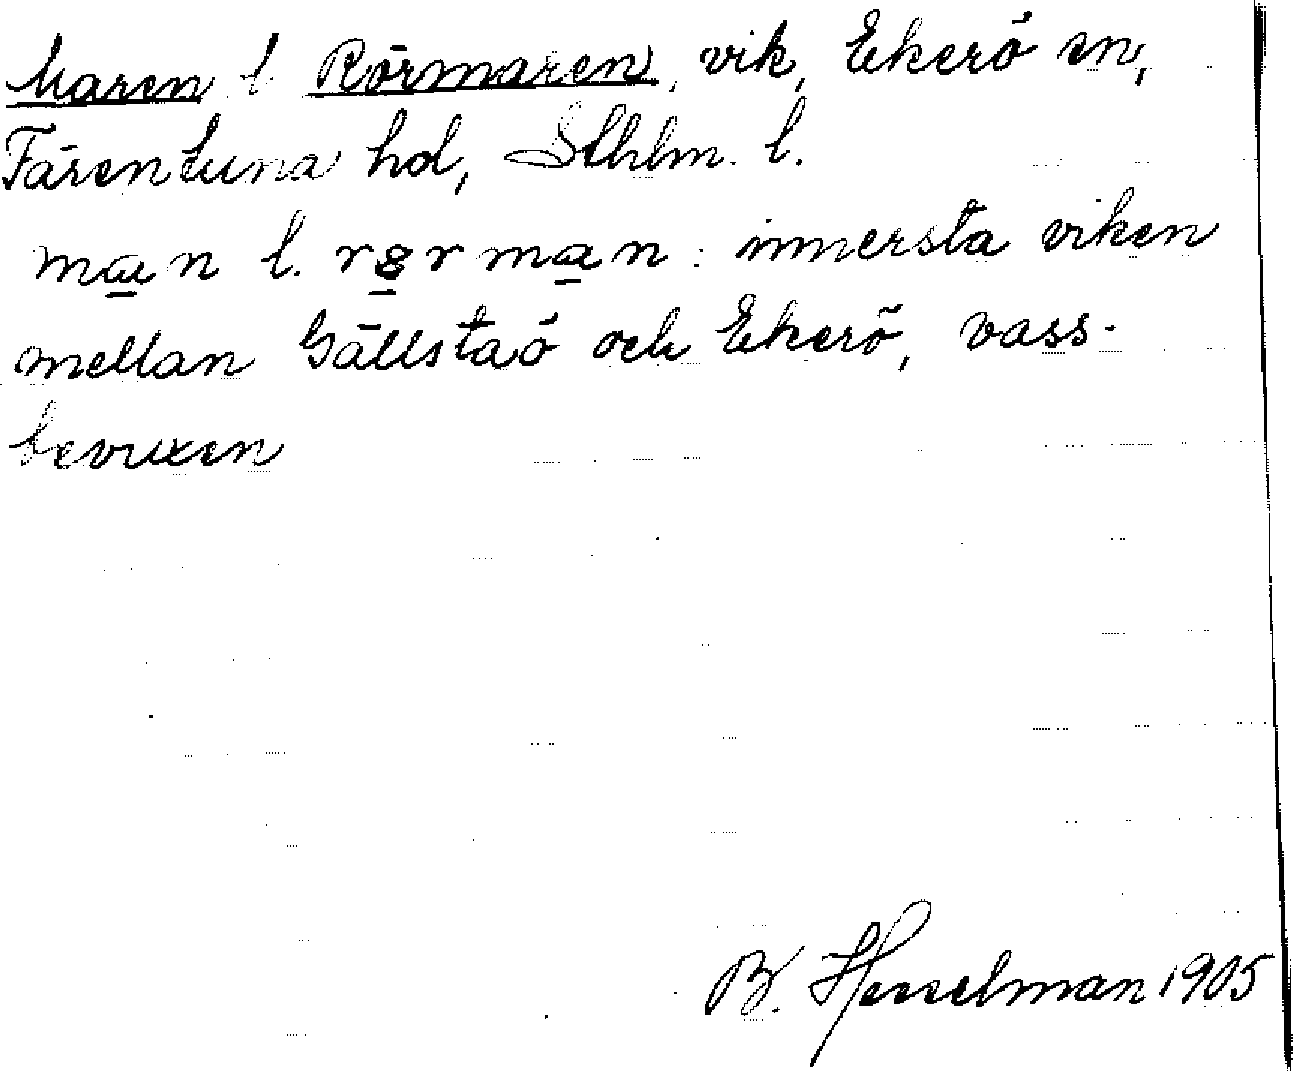 Maren l. Rörmaren, vik, Ekerö sn,
Färentuna hd, Sthlm. l.
man l. rɵrman: innersta viken
mellan Gällstaö och Ekerö, vass-
bevuxen
B. Hesselman 1905